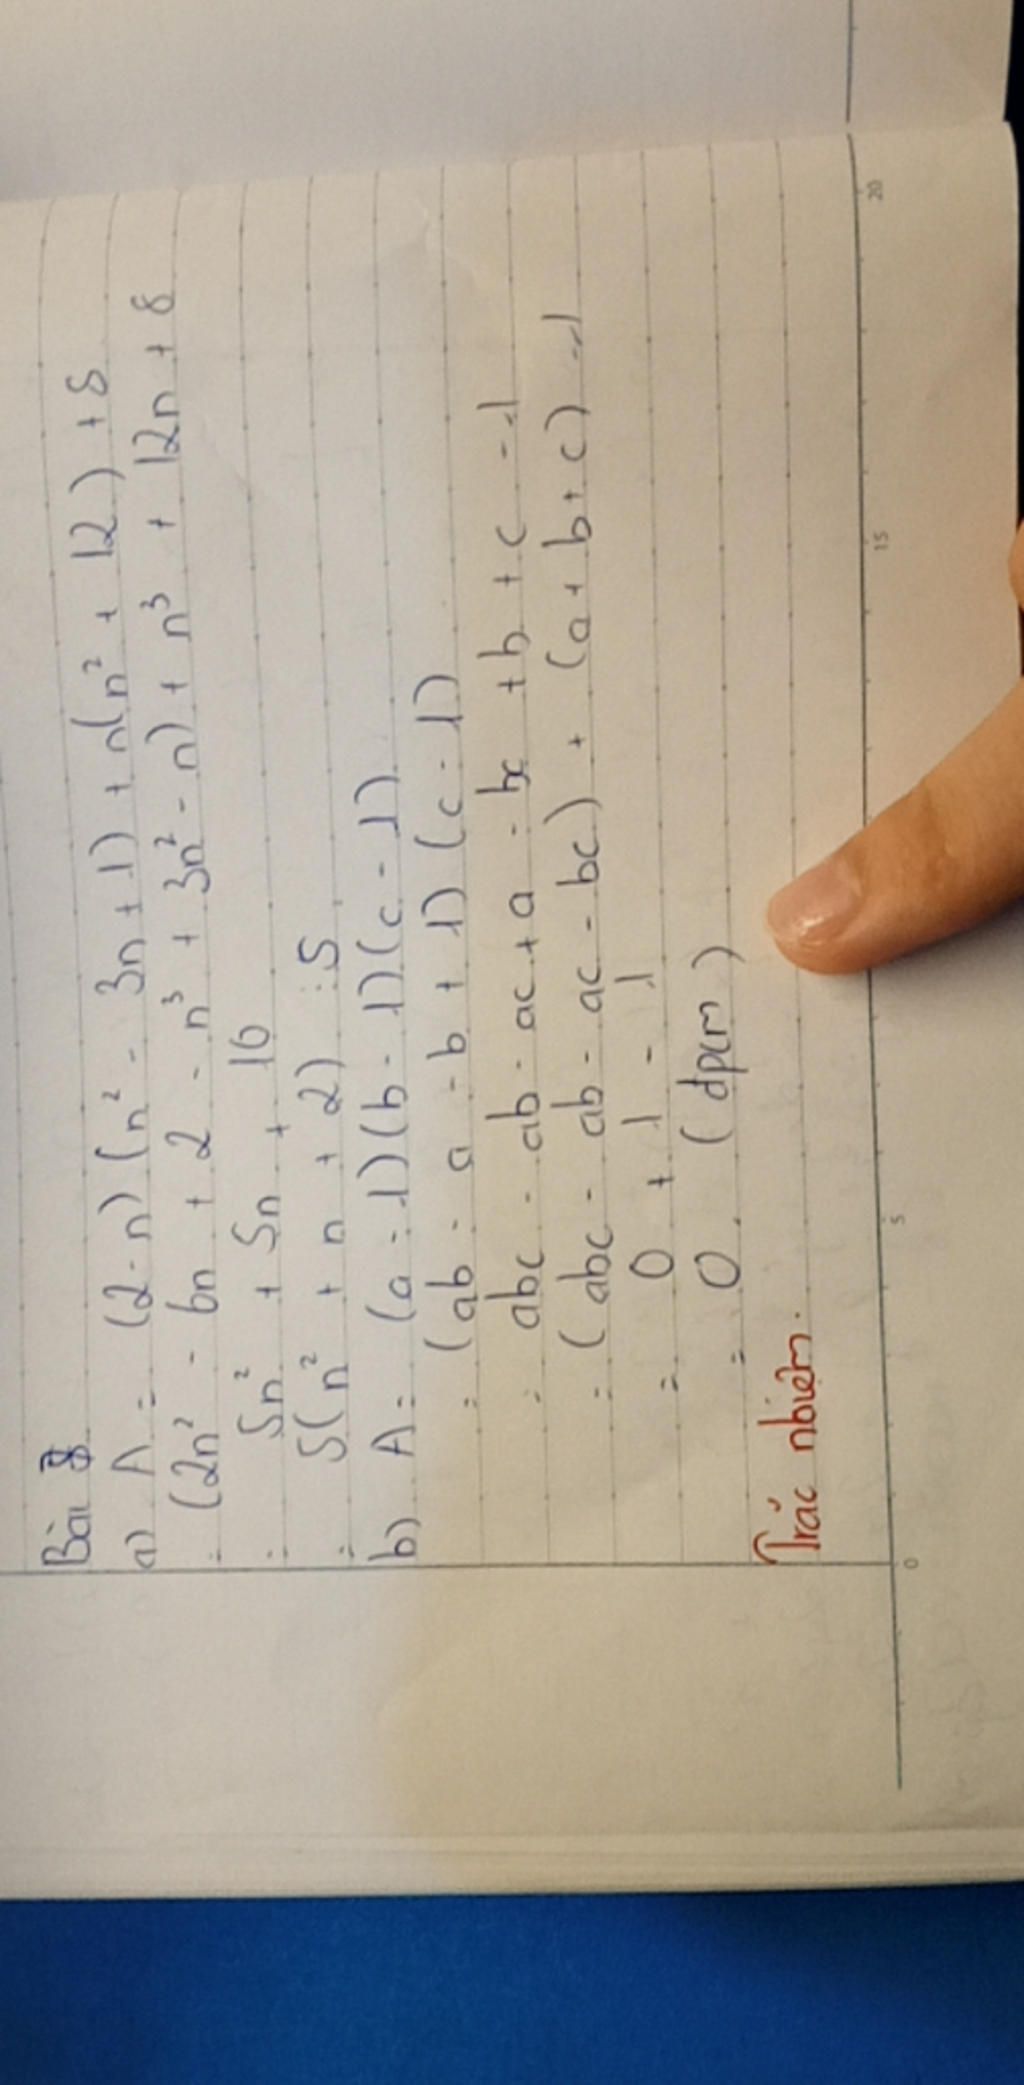 Bài 8
a) A = (2 - n)(n² - 3n + 1) + n(n² + 12) + 8
= (2n² - 6n + 2 - n³ + 3n² - n) + n³ + 12n + 8
= 5n² + 5n + 10
= 5(n² + n + 2) ⋮ 5
b) A = (a - 1)(b - 1)(c - 1)
= (ab - a - b + 1)(c - 1)
= abc - ab - ac + a - bc + b + c - 1
= (abc - ab - ac - bc) + (a + b + c) - 1
= 0 + 1 - 1
= 0. (đpcm)
Trắc nhiệm.
0 5 15 20